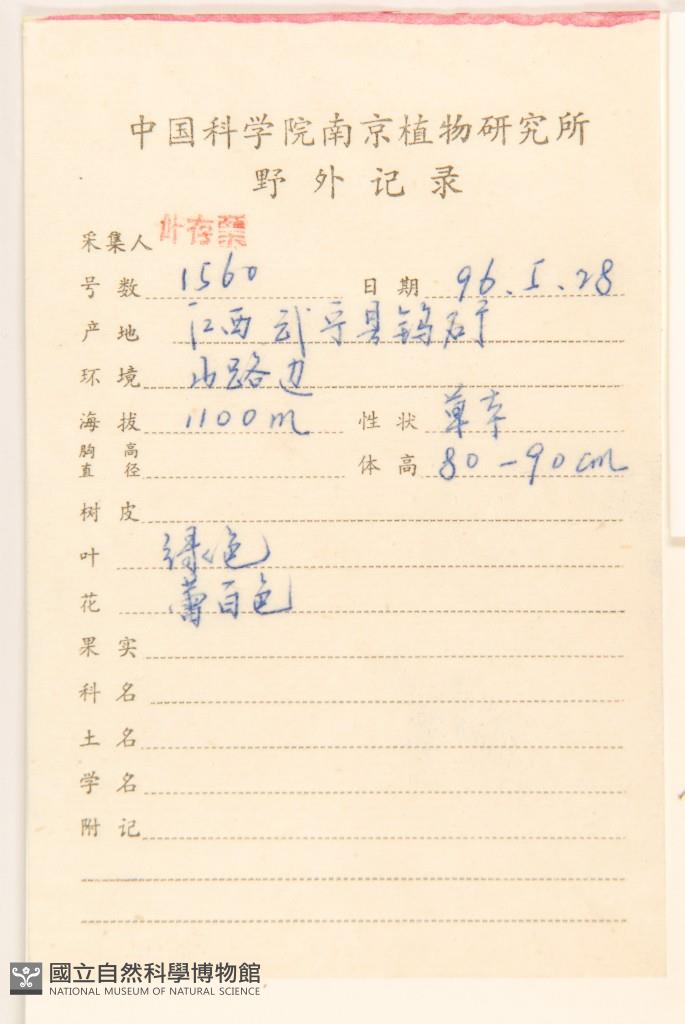 中国科学院南京植物研究所
野外记录
采集人 叶存粟
号数 1560 日期 96.5.28
产地 江西武宁县钨矿
环境 山路边
海拔 1100m 性状 草本
胸高直径 体高 80-90cm
树皮
叶 绿色
花 蕾白色
果实
科名
土名
学名
附记
國立自然科學博物館
NATIONAL MUSEUM OF NATURAL SCIENCE